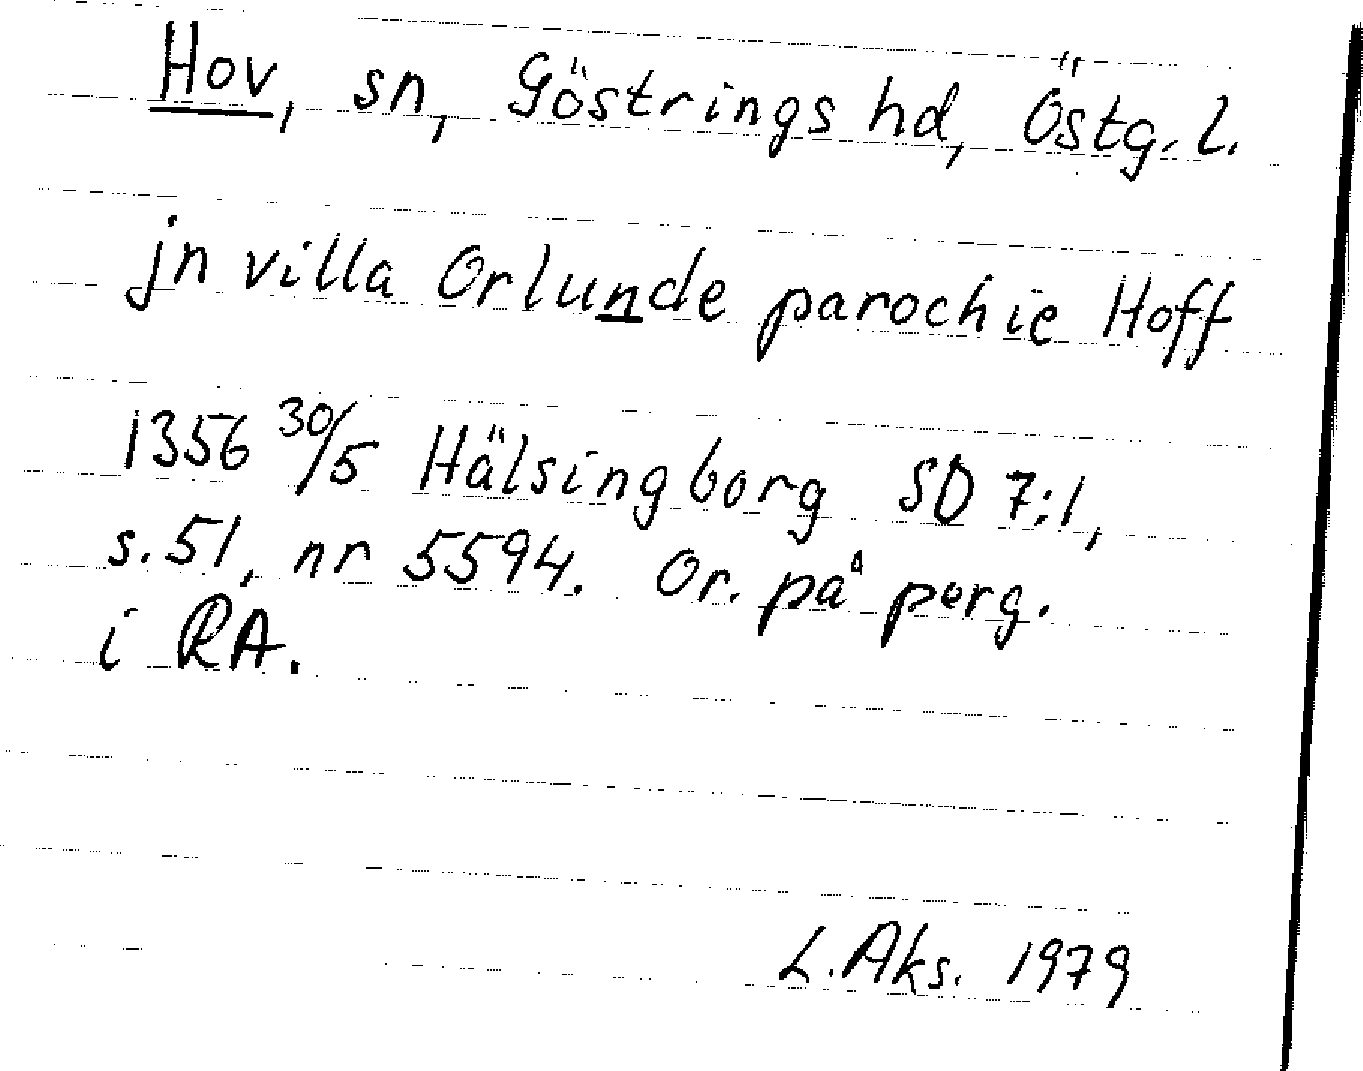 Hov, sn, Göstrings hd, Östg. l.
jn villa Orlunde parochie Hoff
1356 30/5 Hälsingborg SD 7:1,
s. 51, nr 5594. Or. på perg.
i RA.
L. Aks. 1979